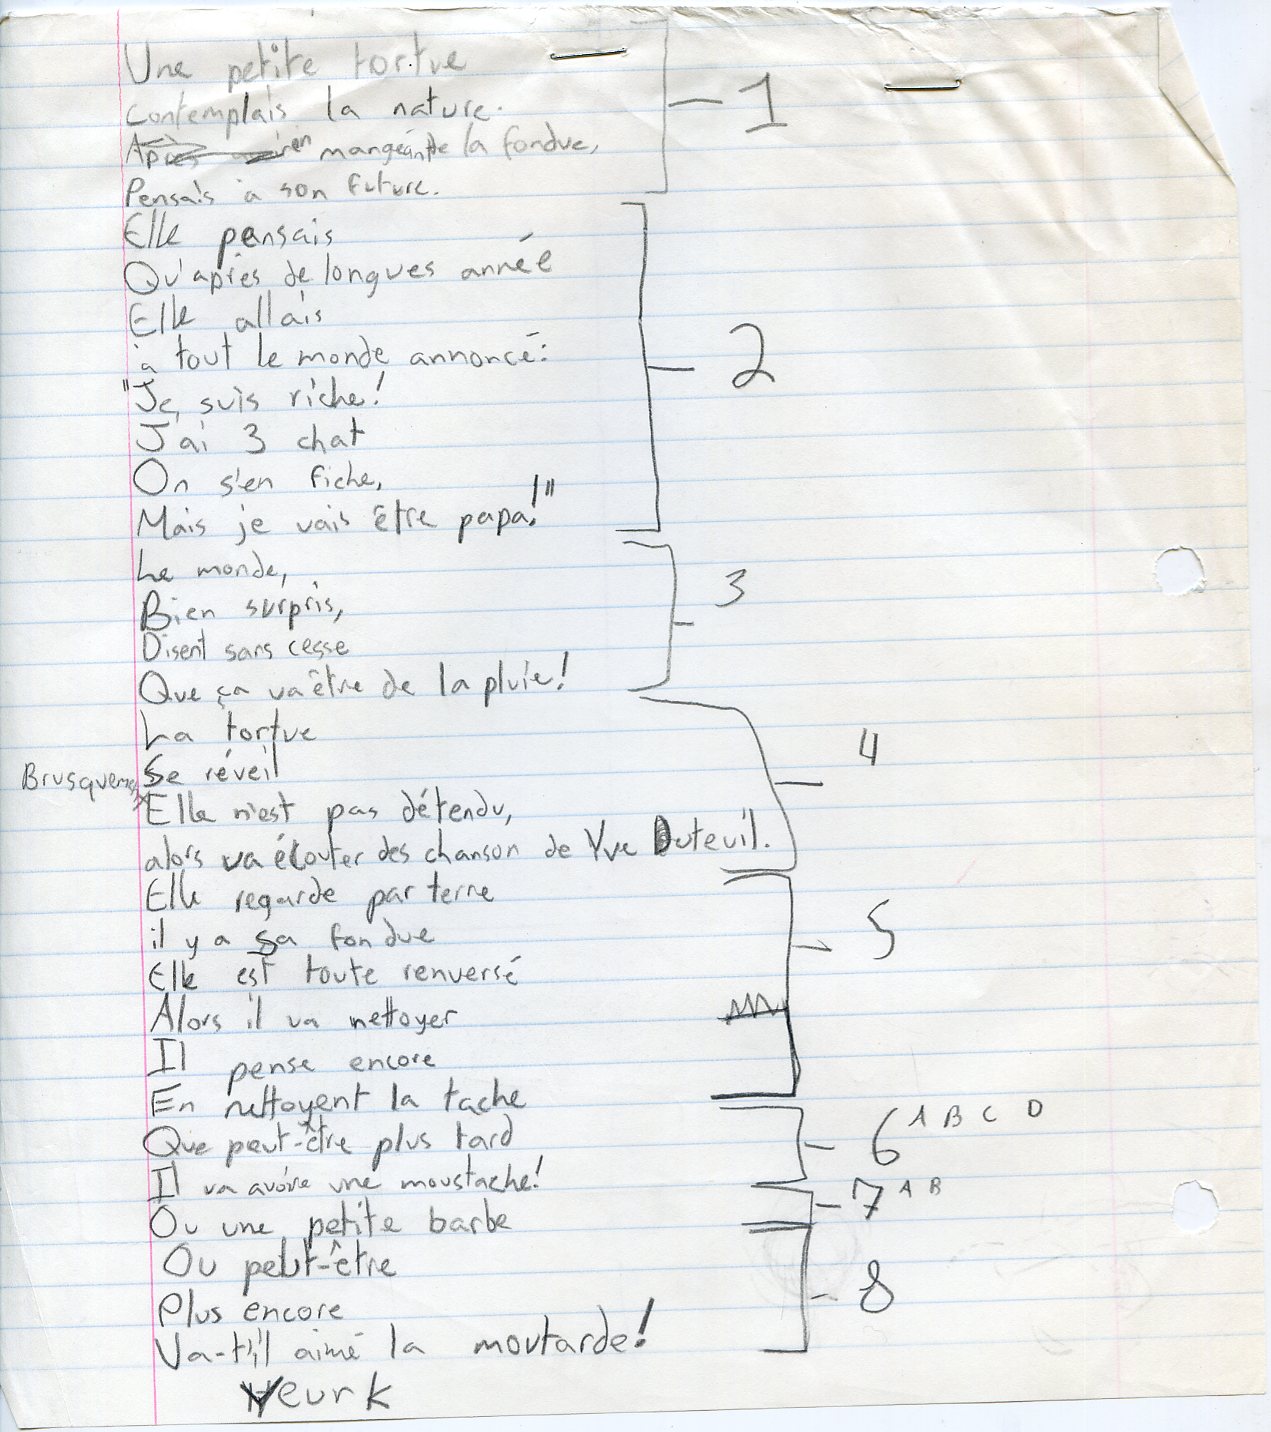 Une petite tortue
Contemplais la nature. 1
en mangeante la fondue,
Pensais à son future.
Elle pensais
Qu'après de longues année
Elle allais
à tout le monde annoncé: 2
"Je suis riche!
J'ai 3 chat
On s'en fiche,
Mais je vais être papa!"
Le monde,
Bien surpris, 3
Disent sans cesse
Que ça va être de la pluie!
La tortue
Brusquement Se réveil 4
Elle n'est pas détendu,
alors va écouter des chanson de Yve Duteuil.
Elle regarde par terre
il y a sa fondue 5
Elle est toute renversé
Alors il va nettoyer
Il pense encore
En nettoyent la tache
Que peut-être plus tard 6 A B C D
Il va avoire une moustache!
Ou une petite barbe 7 A B
Ou peut-être
Plus encore 8
Va-t'il aimé la moutarde!
Yeurk